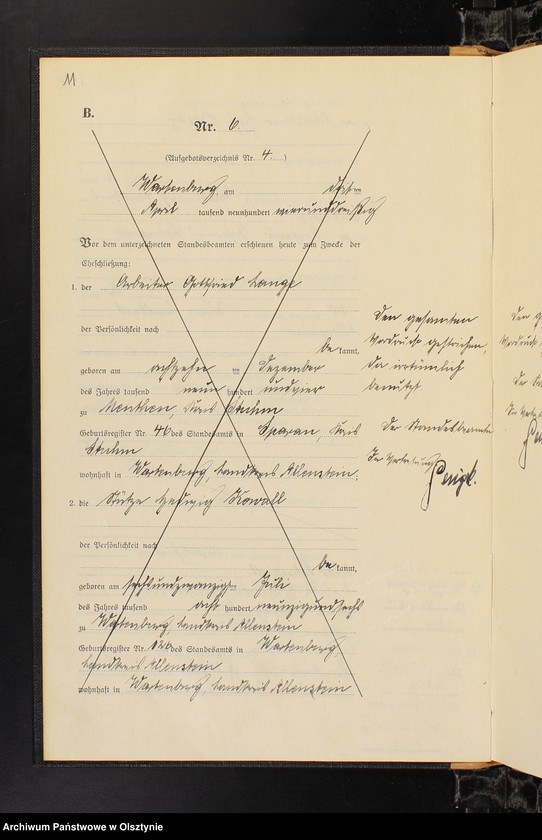 11
B.
Nr. 6.
(Aufgebotsverzeichnis Nr. 4. )
Wartenburg, am
April tausend neunhundert vierunddreißig
Vor dem unterzeichneten Standesbeamten erschienen heute zum Zwecke der
Eheschließung:
1. der Arbeiter Gottfried Lange
der Persönlichkeit nach
be kannt,
geboren am achtzehn ten Dezember
des Jahres tausend neun hundert undvier
zu Menthen, Kreis Stuhm
Geburtsregister Nr. 46 des Standesamts in Kreis
Stuhm
wohnhaft in Wartenburg, Landkreis Allenstein;
2. die Stütze Hedwig Kowall
der Persönlichkeit nach
be kannt,
geboren am sechsundzwanzigsten Juli
des Jahres tausend acht hundert neunzigundsechs
zu Wartenburg, Landkreis Allenstein
Geburtsregister Nr. des Standesamts in Wartenburg
Landkreis Allenstein
wohnhaft in Wartenburg, Landkreis Allenstein
Den gesamten
Vordruck gestrichen,
da irrtümlich
benutzt.
Der Standesbeamte
In Vertretung
Archiwum Państwowe w Olsztynie